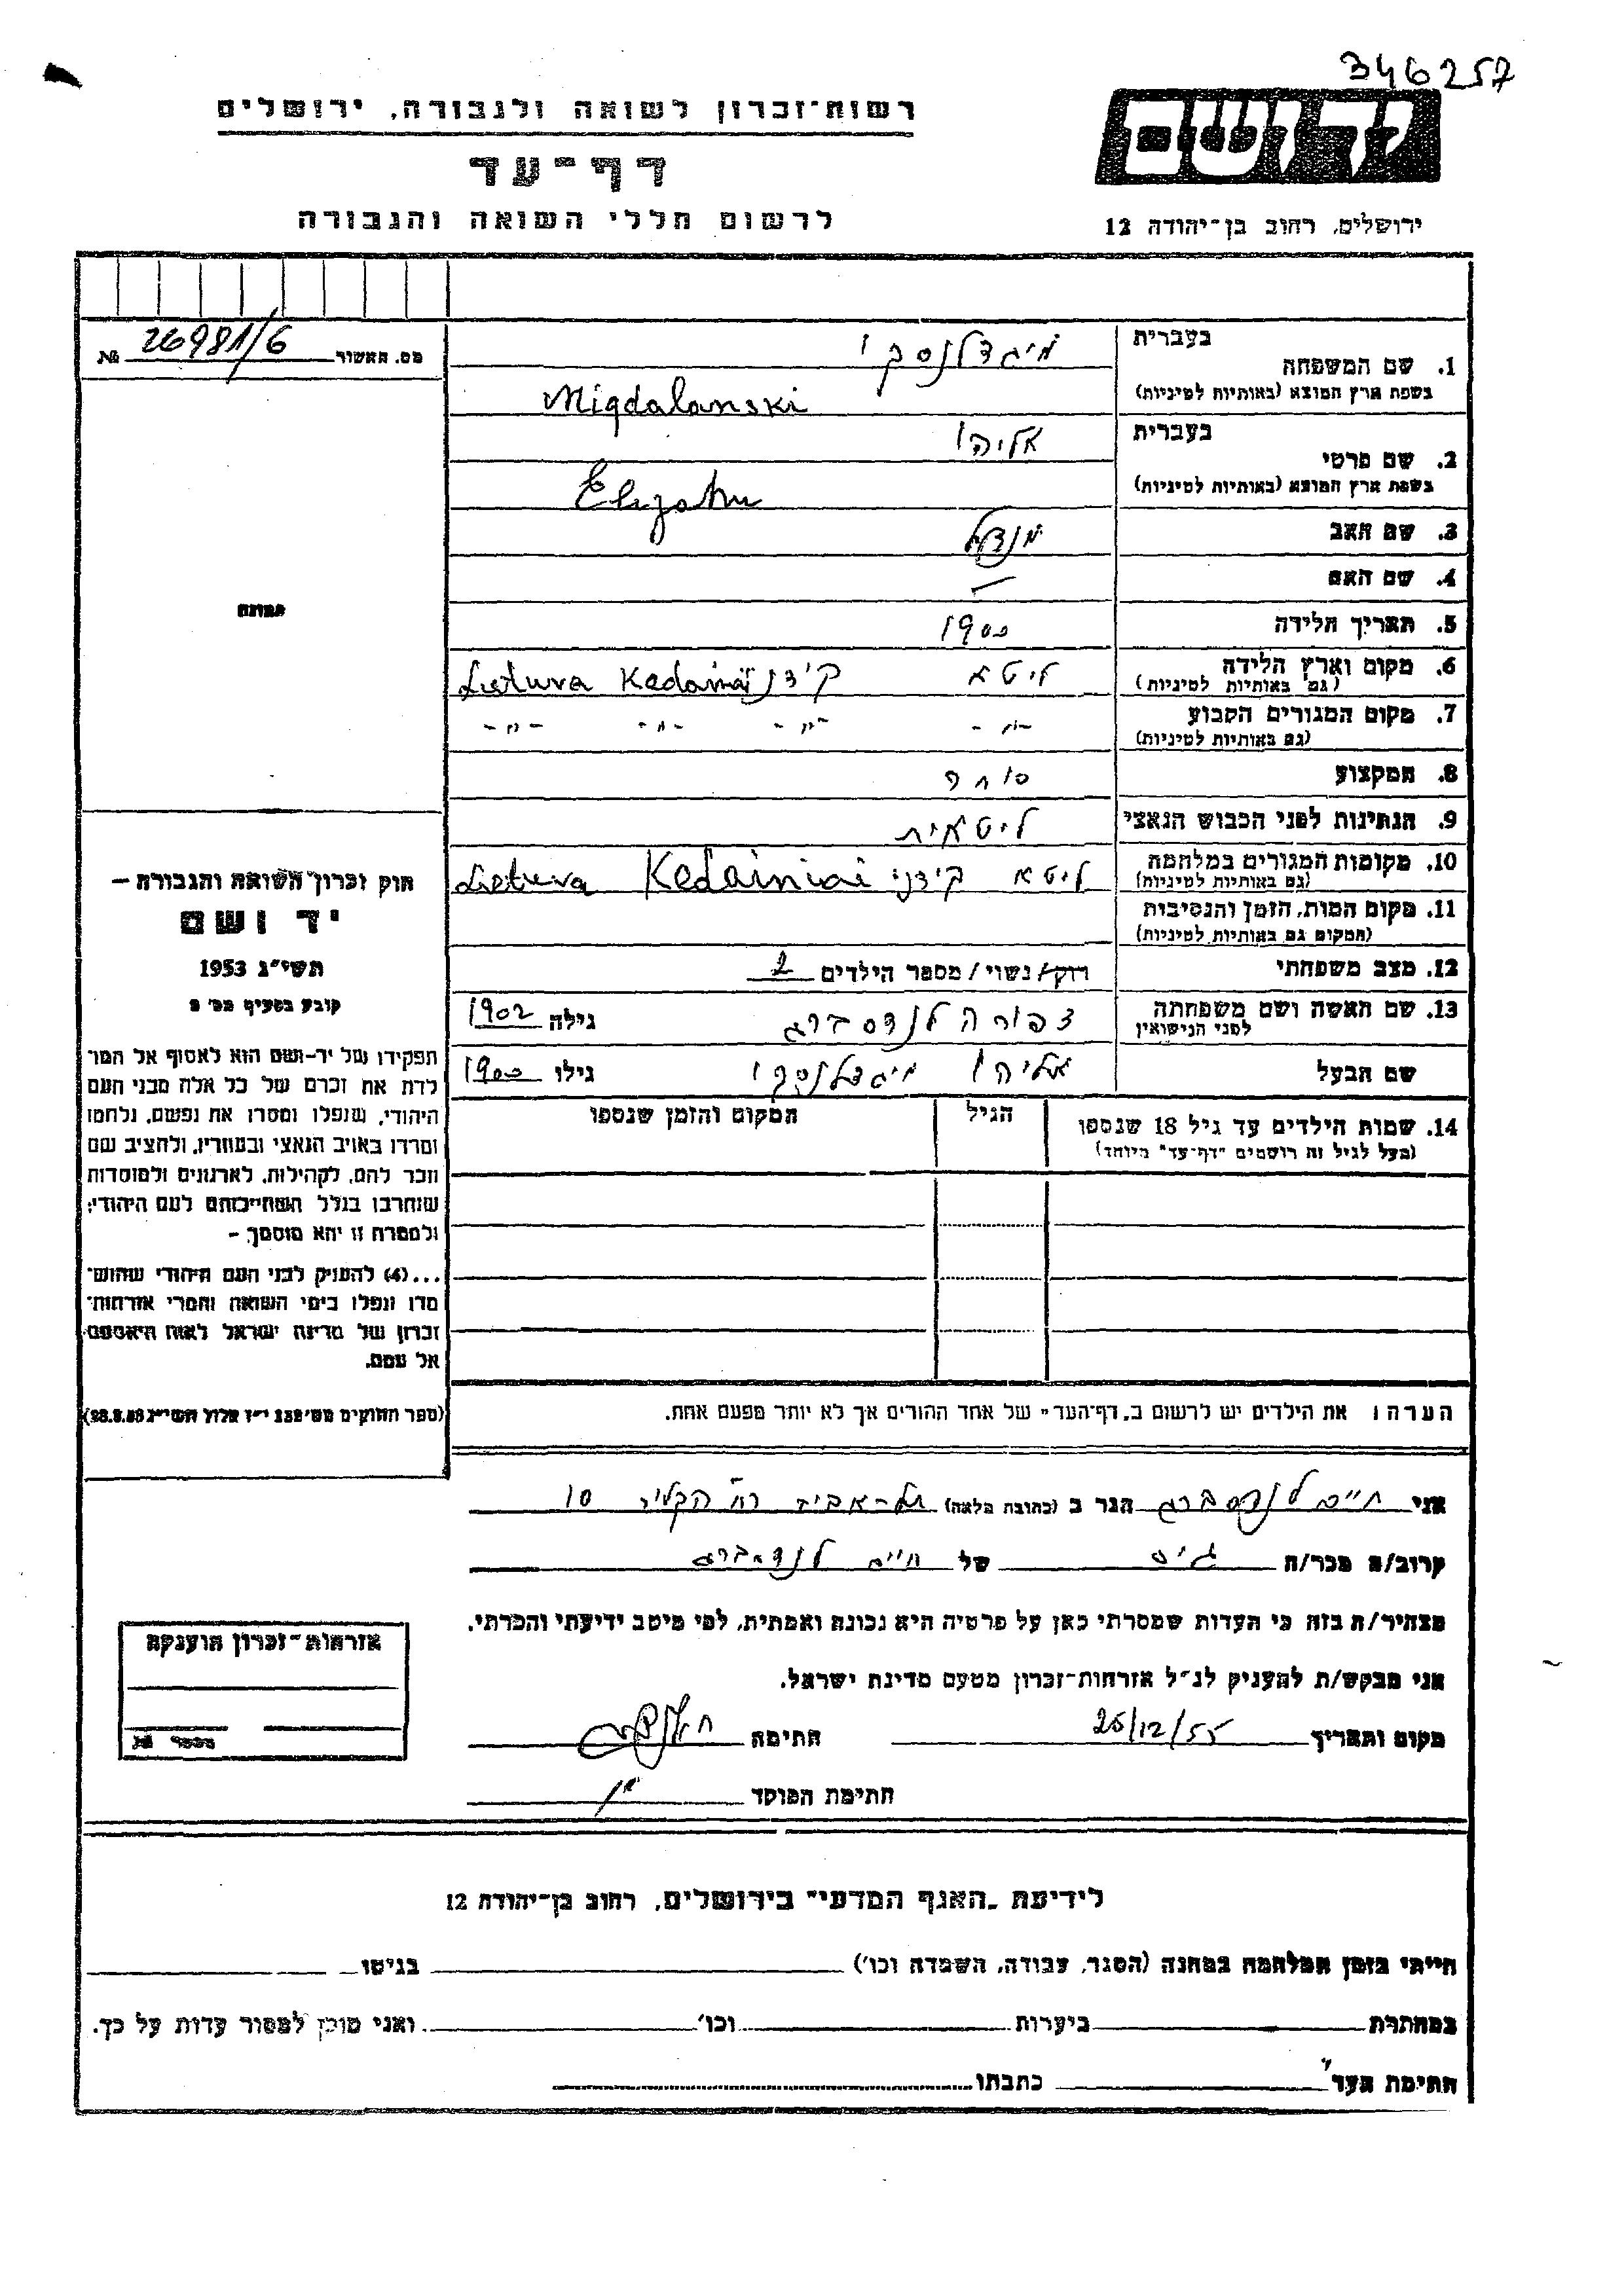 346257
רשות־זכרון לשואה ולגבורה, ירושלים
יד ושם
דף־עד
לרשום חללי השואה והגבורה
ירושלים, רחוב בן־יהודה 12
מס. האשור № 26981/6
בעברית
1. שם המשפחה מיגדלנסקי
בשפת ארץ המוצא (באותיות לטיניות) Migdalanski
בעברית
2. שם פרטי אליהו
בשפת ארץ המוצא (באותיות לטיניות) Elijahu
3. שם האב מנדל
4. שם האם —
5. תאריך הלידה 1900
6. מקום וארץ הלידה ליטא קידן Lietuva Kedainiai
(גם באותיות לטיניות)
7. מקום המגורים הקבוע -"- -"- -"- -"-
(גם באותיות לטיניות)
8. המקצוע סוחר
9. הנתינות לפני הכבוש הנאצי ליטאית
10. מקומות המגורים במלחמה ליטא קידני Kedainiai Lietuva
(גם באותיות לטיניות)
11. מקום המות, הזמן והנסיבות
(המקום גם באותיות לטיניות)
12. מצב משפחתי רוק/נשוי/מספר הילדים 2
13. שם האשה ושם משפחתה צפורה לנדסברג גילה 1902
לפני הנישואין
שם הבעל אליהו מיגדלנסקי גילו 1900
14. שמות הילדים עד גיל 18 שנספו הגיל המקום והזמן שנספו
(מעל לגיל זה רושמים "דף־עד" מיוחד)
תמונה
חוק זכרון השואה והגבורה —
יד ושם
תשי"ג 1953
קובע בסעיף מס' 2
תפקידו של יד־ושם הוא לאסוף אל המו
לדת את זכרם של כל אלה מבני העם
היהודי, שנפלו ומסרו את נפשם, נלחמו
ומרדו באויב הנאצי ובעוזריו, ולהציב שם
וזכר להם, לקהילות, לארגונים ולמוסדות
שנחרבו בגלל השתייכותם לעם היהודי;
ולמטרה זו יהא מוסמך —
...(4) להעניק לבני העם היהודי שהוש־
מדו ונפלו בימי השואה והמרי אזרחות־
זכרון של מדינת ישראל לאות היאספם
אל עמם.
(ספר החוקים מס' 132 י"ז אלול תשי"ג 28.8.53)
הערה: את הילדים יש לרשום ב„דף־העד" של אחד ההורים אך לא יותר מפעם אחת.
אני חיים לנדסברג הגר ב (כתובת מלאה) תל-אביב רח' הקליר 10
קרוב/ה מכר/ה גיס של חיים לנדסברג
מצהיר/ה בזה כי העדות שמסרתי כאן על פרטיה היא נכונה ואמתית, לפי מיטב ידיעתי והכרתי.
אני מבקש/ת להעניק לנ"ל אזרחות־זכרון מטעם מדינת ישראל.
מקום ותאריך 25/12/55 חתימה
חתימת הפוקד
אזרחות־זכרון הוענקה
מספר №
לידיעת „האגף המדעי" בירושלים, רחוב בן־יהודה 12
הייתי בזמן המלחמה במחנה (הסגר, עבודה, השמדה וכו') בגיטו
במחתרת ביערות וכו' ואני מוכן למסור עדות על כך.
חתימת העד כתבתו